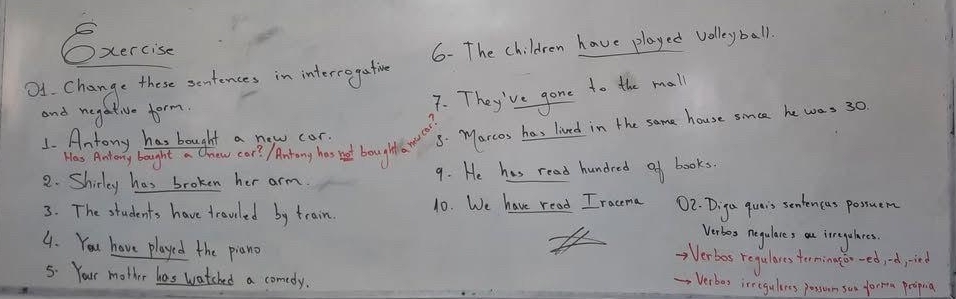 Exercise
01- Change these sentences in interrogative
and negative form.
1- Antony has bought a new car.
Has Antony bought a new car? / Antony has not bought a new car?
2- Shirley has broken her arm.
3- The students have traveled by train.
4- You have played the piano
5- Your mother has watched a comedy.
6- The children have played volleyball.
7- They've gone to the mall
8- Marcos has lived in the same house since he was 30.
9- He has read hundred of books.
10. We have read Iracema
02- Diga quais sentenças possuem
Verbos regulares ou irregulares.
→ Verbos regulares terminação -ed, -d, -ied
→ Verbos irregulares possuem sua forma própria